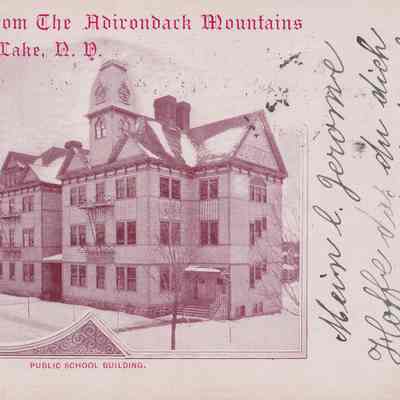 om The Adirondack Mountains
Lake, N. Y.
PUBLIC SCHOOL BUILDING.
Mein l. Jerome
Hoffe das du dich